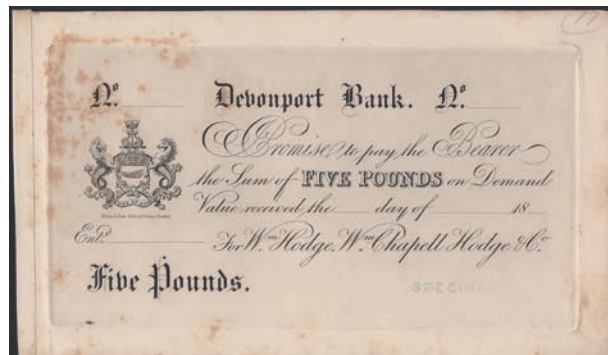 17
Nº Devonport Bank. Nº
I Promise to pay the Bearer
the Sum of FIVE POUNDS on Demand
Value received the day of 18
Entd. For Wm Hodge, Wm Chapell Hodge & Co.
Five Pounds.
SPECIMEN